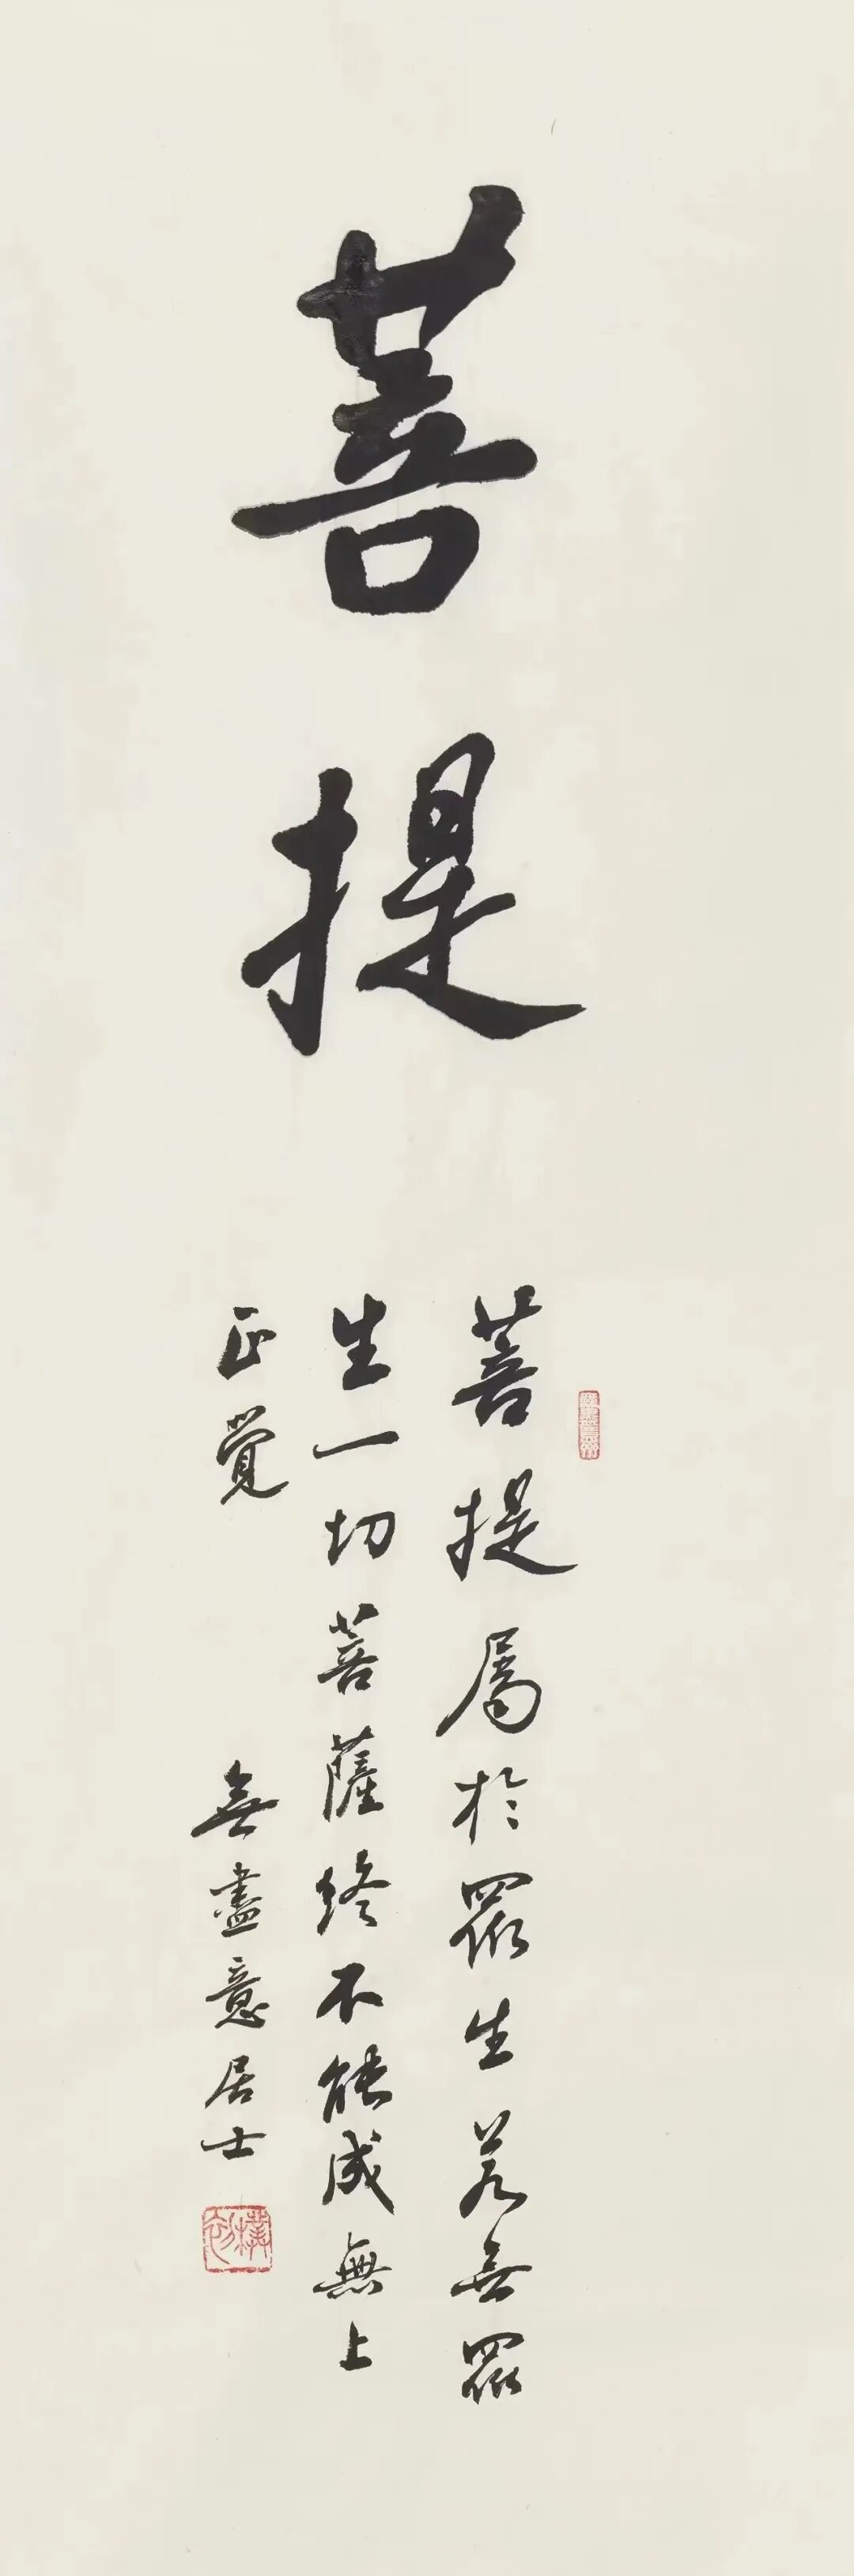 菩提
菩提屬於眾生若無眾
生一切菩薩終不能成無上
正覺
無盡意居士